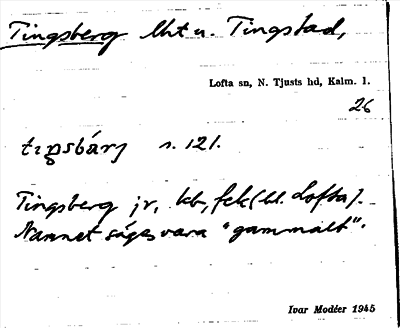 Tingsberg lht u. Tingstad,
Lofta sn, N. Tjusts hd, Kalm. l.
26
s. 121.
Tingsberg jr, kb, fek (bl. Lofta).
Namnet säges vara "gammalt".
Ivar Modéer 1945